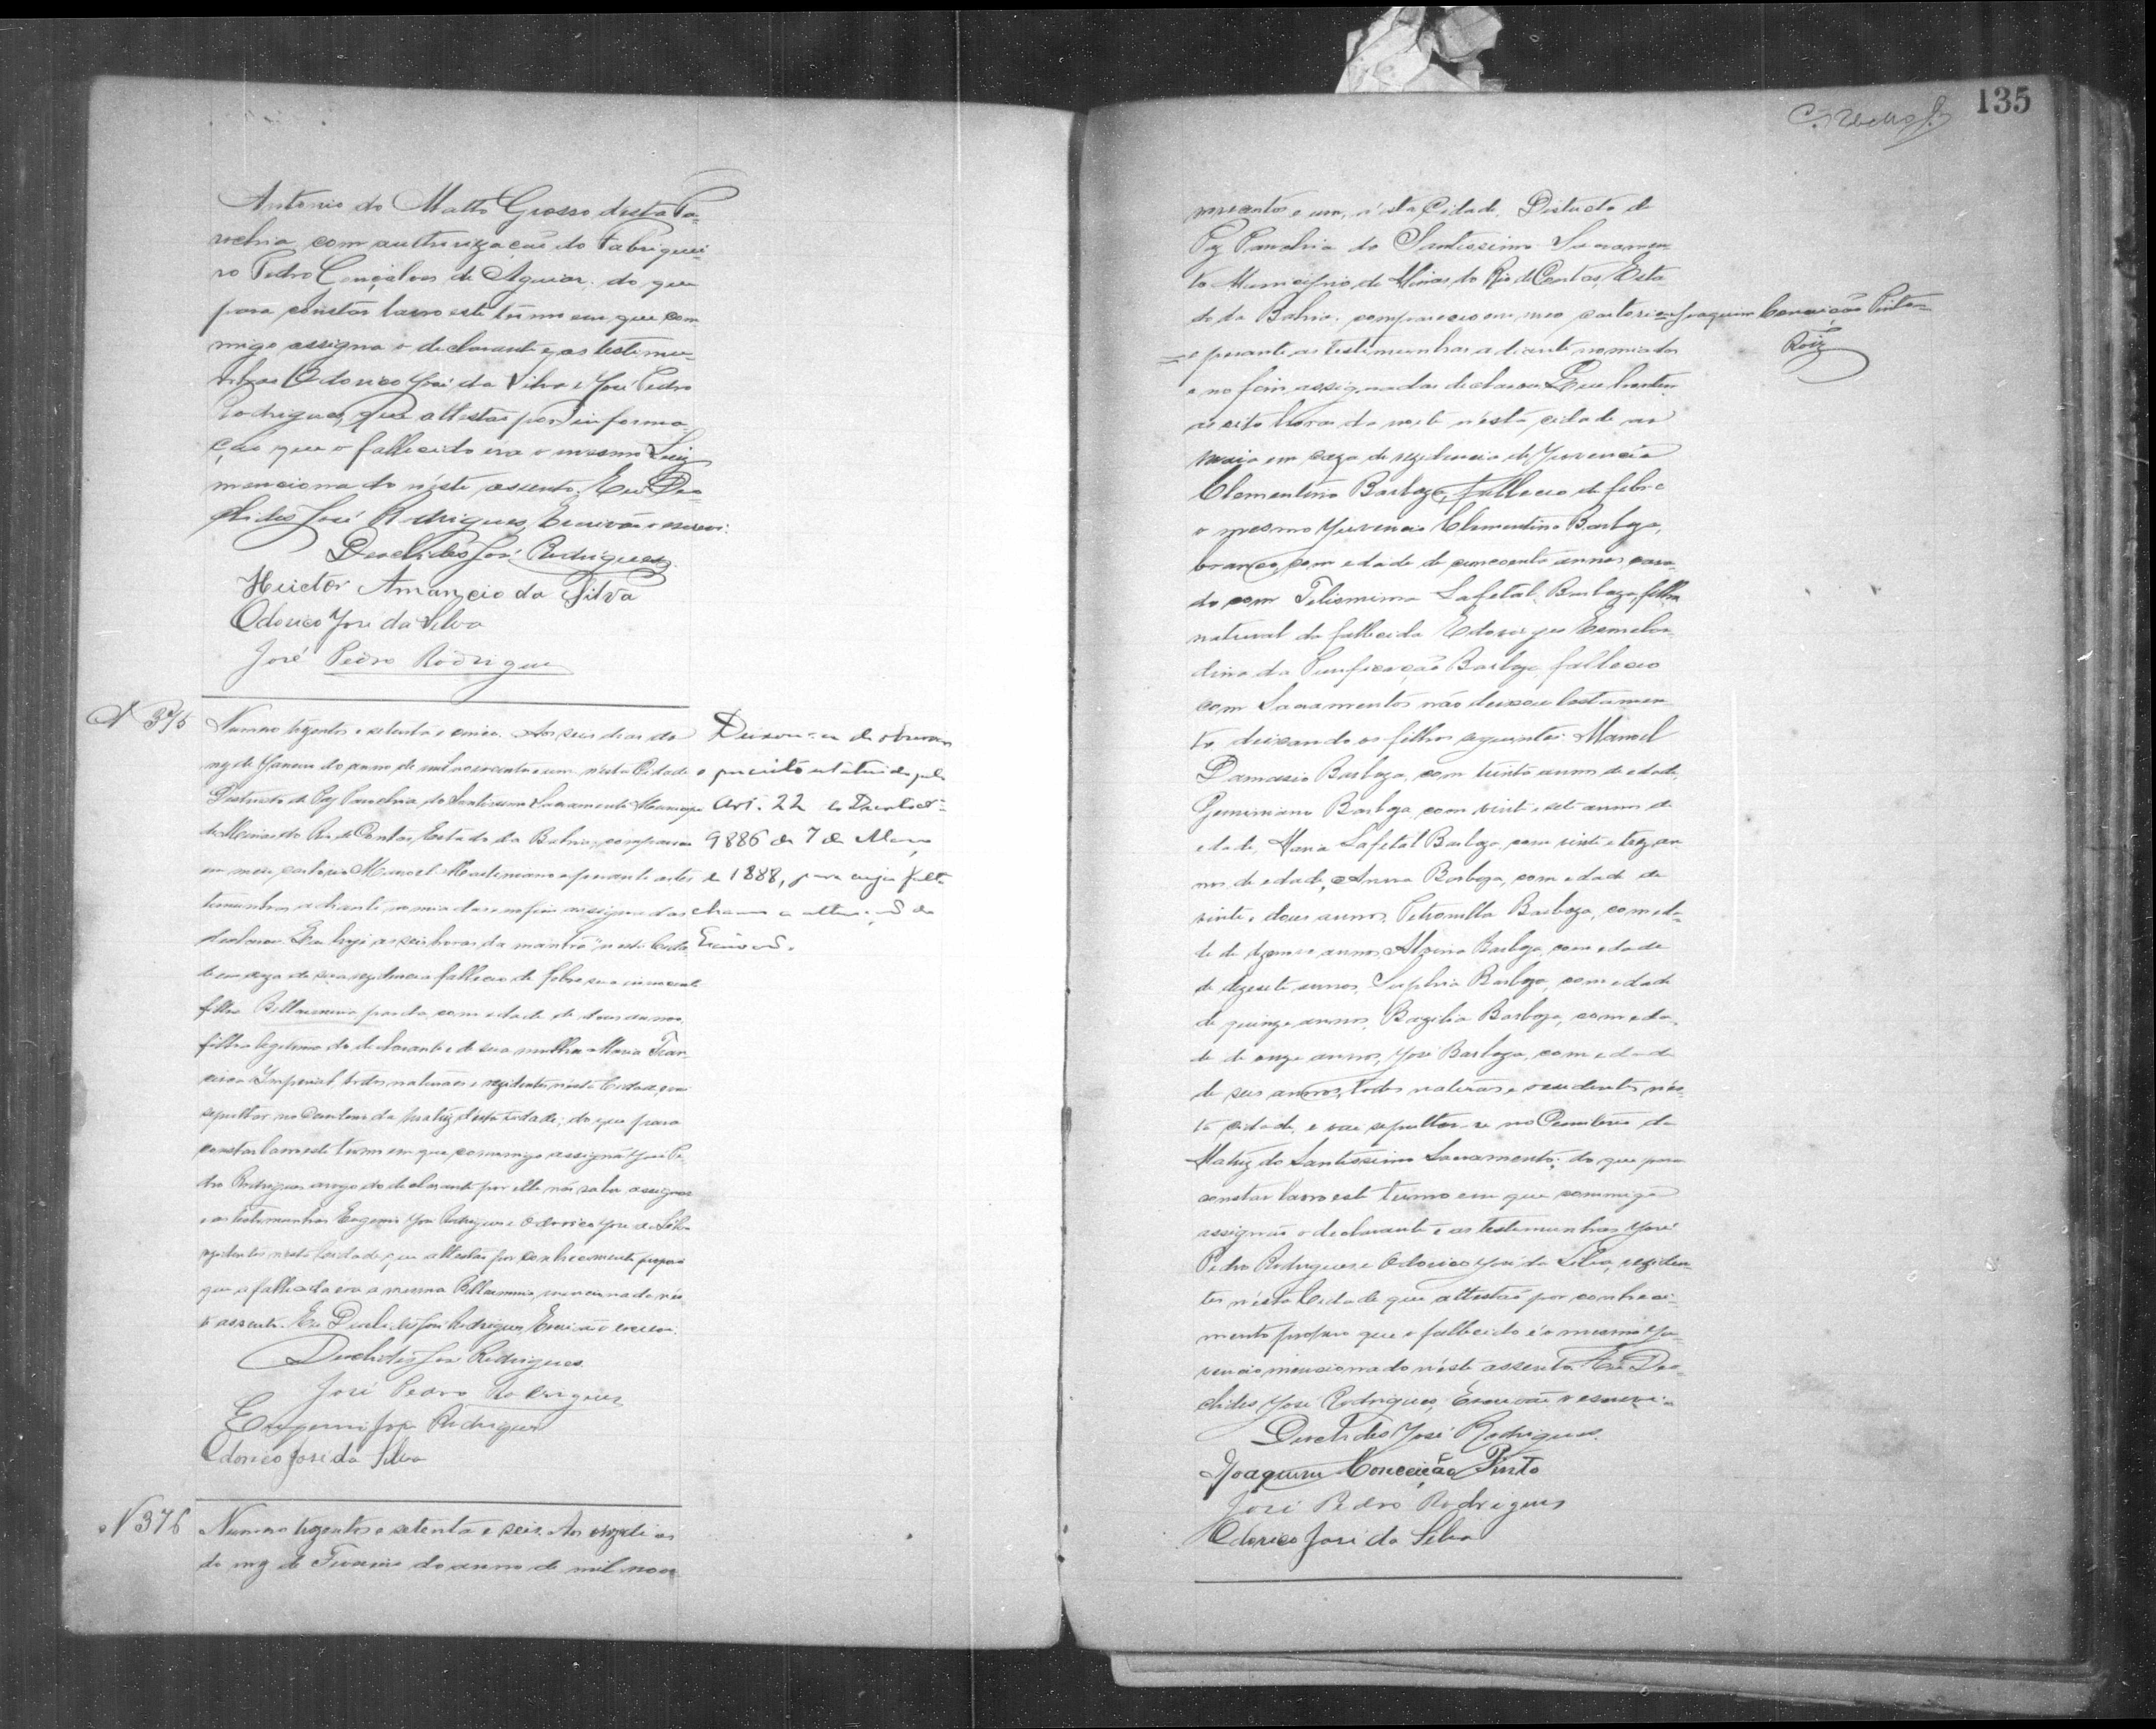 Antonio do Matto Grosso desta Pa-
rochia, com authorização do Fabriquei-
ro Pedro Gonçalves de Aguiar, do que
para constar lavro este termo em que com-
migo assigna o declarante e as testemu-
nhas Odorico José da Silva e José Pedro
Rodrigues, que attestão por informa-
ção que o fallecido era o mesmo Luiz
mencionado nêste assento. Eu Deo-
clides José Rodrigues, Escrivão o escrevi.
Deoclides José Rodrigues.
Heictor Amancio da Silva
Odorico José da Silva
José Pedro Rodrigues
N 375
Numero trezentos e setenta e cinco. Aos seis dias do
mez de Janeiro do anno de mil novecentos e um, nésta Cidade
Districto de Paz Parochia do Santissimo Sacramento Municipio
de Minas do Rio de Contas, Estado da Bahia, compareceo
em meu cartorio Manoel Martiniano e perante as tes-
temunhas adiante nomiadas e no fim assignadas
declarou: Que hoje as seis horas da manhã nesta Cida-
de em caza de sua rezidencia falleceo de febre sua innocente
filha Bellarmina parda, com edade de dous annos,
filha legitima do declarante e de sua mulher Maria Fran-
cisca Imperial, todos naturaes e rezidentes nésta Cidade, vai
sepultar no Cemiterio da Matriz desta cidade; do que para
constar lavro este termo em que commigo assigna José Pe-
dro Rodrigues arogo do declarante por elle não saber assignar
e as testemunhas Eugenio José Rodrigues e Odorico José da Silva
rezidentes nesta Cidade, que attestão por conhecimento proprio
que a fallecida era a mesma Bellarmina mencionada nes-
te assento. Eu Deoclides José Rodrigues, Escrivão o escrevi.
Deoclides José Rodrigues.
José Pedro Rodrigues
Eugenio José Rodrigues
Odorico José da Silva
Deixou-se de observar
o preceito estatuido pelo
Art. 22 do Decreto nº
9886 de 7 de Março
de 1888, para cuja falta
chamo a attenção do
Escrivão.
N 376
Numero trezentos e setenta e seis. Aos onze dias
do mez de Fevereiro do anno de mil nove
135
centos e um, n'ésta Cidade, Districto de
Paz Parochia do Santissimo Sacramen-
to Municipio de Minas do Rio de Contas, Esta-
do da Bahia, compareceo em meo cartorio Joaquim Conceição Pinto
e perante as testemunhas adiante nomiadas
e no fim assignadas declarou: Que hontem
as oito horas da noite nésta cidade no
em caza de rezidencia de Juvencio
Clementino Barboza, falleceo de febre
o mesmo Juvencio Clementino Barboza,
branco, com edade de cincoenta annos casa-
do com Lafetal Barboza, filho
natural da fallecida Edoviges
da Purificação Barboza, falleceo
com Sacramentos não deixou testamen-
to, deixando os filhos seguintes: Manoel
Damasio Barboza, com trinta annos de edade,
Geminiano Barboza com vinte e sete annos de
edade, Maria Lafetal Barboza, com vinte e trez an-
nos de edade, Anna Barboza, com edade de
vinte e dous annos, Petronilla Barboza, com eda-
de de dezenove annos, Barboza, com edade
de dezesete annos, Sophia Barboza, com edade
de quinze annos, Bazilia Barboza, com eda-
de de onze annos, José Barboza, com edade
de seis annos, todos naturaes e rezidentes nés-
ta cidade, e vae sepultar-se no Cemiterio da
Matriz do Santissimo Sacramento; do que para
constar lavro este termo em que commigo
assignão o declarante e as testemunhas José
Pedro Rodrigues e Odorico José da Silva, reziden-
tes nésta Cidade que attestão por conheci-
mento proprio que o fallecido é o mesmo Ju-
vencio mencionado néste assento. Eu Deo-
clides José Rodrigues, Escrivão o escrevi.
Deoclides José Rodrigues.
Joaquim Conceição Pinto
José Pedro Rodrigues
Odorico José da Silva